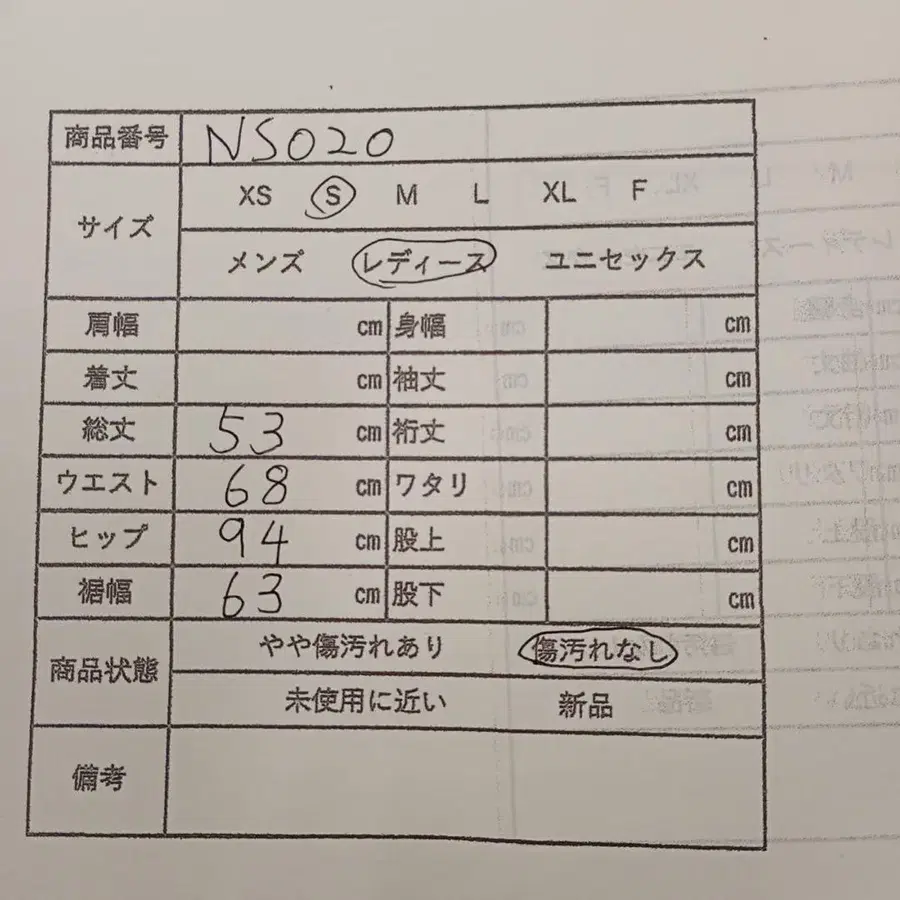 商品番号 NS020
サイズ XS S M L XL F
メンズ レディース ユニセックス
肩幅 cm 身幅 cm
着丈 cm 袖丈 cm
総丈 53 cm 裄丈 cm
ウエスト 68 cm ワタリ cm
ヒップ 94 cm 股上 cm
裾幅 63 cm 股下 cm
商品状態 やや傷汚れあり 傷汚れなし
未使用に近い 新品
備考